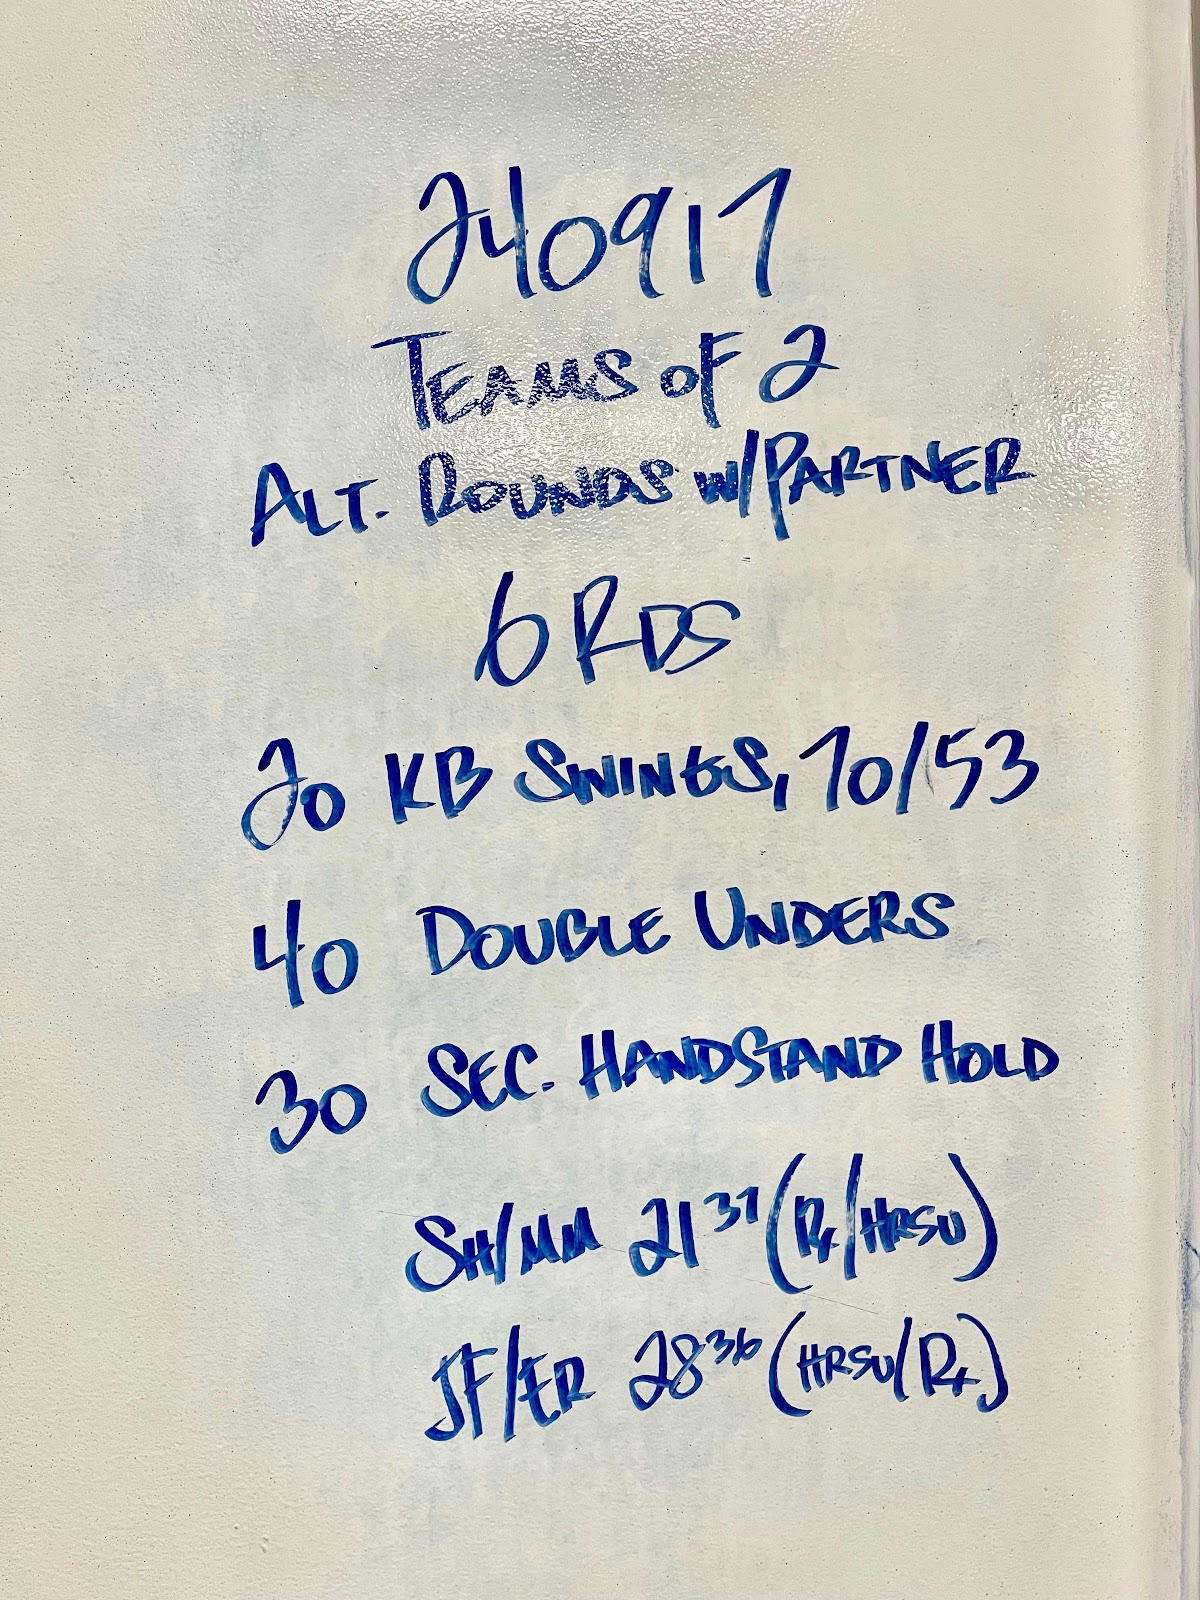 240917
TEAMS OF 2
ALT. ROUNDS W/PARTNER
6 RDS
20 KB SWINGS, 70/53
40 DOUBLE UNDERS
30 SEC. HANDSTAND HOLD
SH/MM 21³⁷ (Rx/HRSU)
JF/ER 28³⁶ (HRSU/Rx)